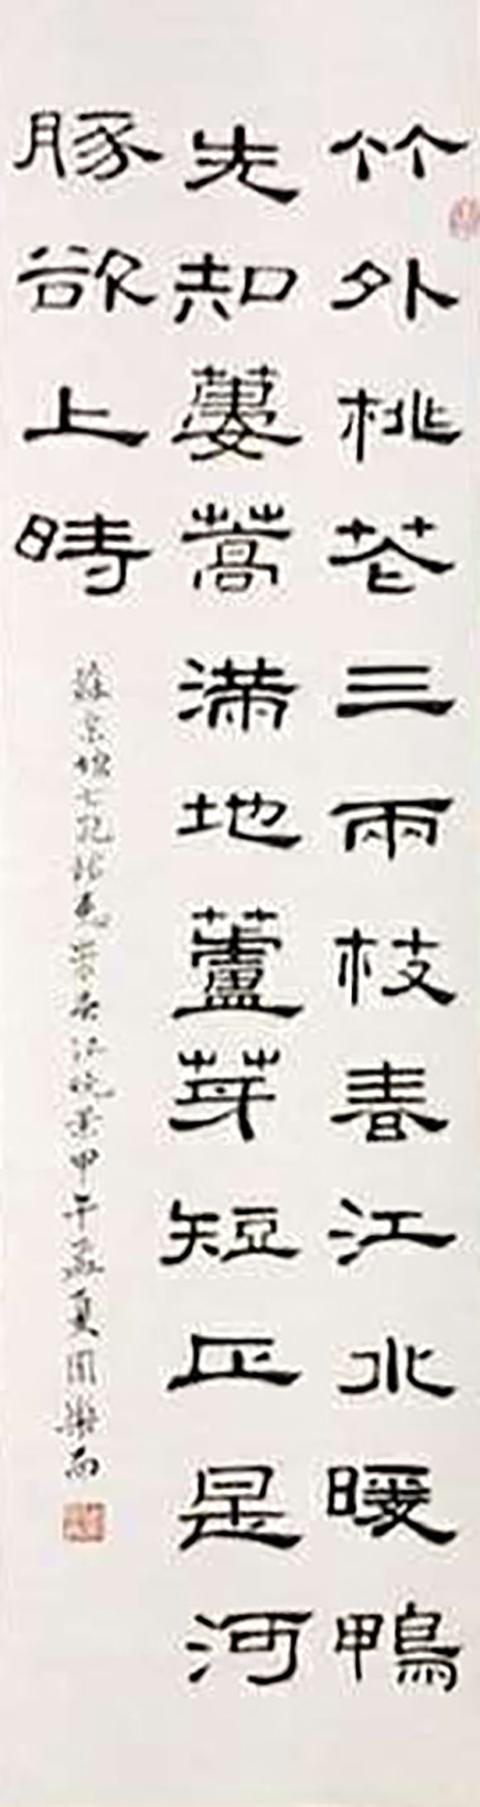 竹外桃花三兩枝春江水暖鴨
先知蔞蒿滿地蘆芽短正是河
豚欲上時
蘇東坡七絕惠崇春江晚景甲午孟夏周樂